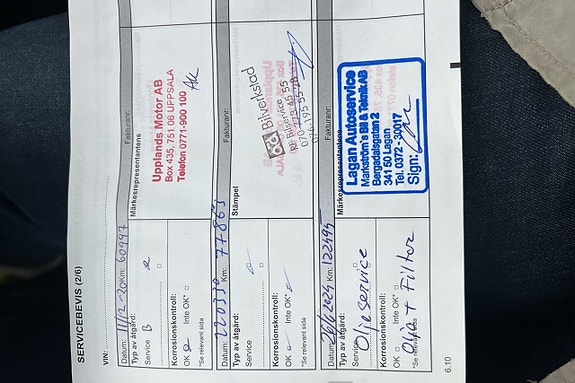 SERVICEBEVIS (2/6)
VIN:
Datum: 11/12-20 Km: 60997
Fakturanr:
Typ av åtgärd:
Service B
Märkesrepresentantens
Upplands Motor AB
Box 435, 751 06 UPPSALA
Telefon 0771-900 100
Korrosionskontroll:
OK Inte OK*
*Se relevant sida
Datum: 220330 Km: 77863
Fakturanr:
Typ av åtgärd:
Service
Stämpel
Bilverkstad
Korrosionskontroll:
OK Inte OK*
*Se relevant sida
Datum: 26/6 2024 Km: 122495
Fakturanr:
Typ av åtgärd:
Oljeservice
Märkesrepresentantens
Lagan Autoservice
Markström Bil & Teknik AB
Bergadalsgatan 2
341 50 Lagan
Tel. 0372 - 30017
Sign:
Korrosionskontroll:
OK Inte OK*
Olja + Filter
6.10